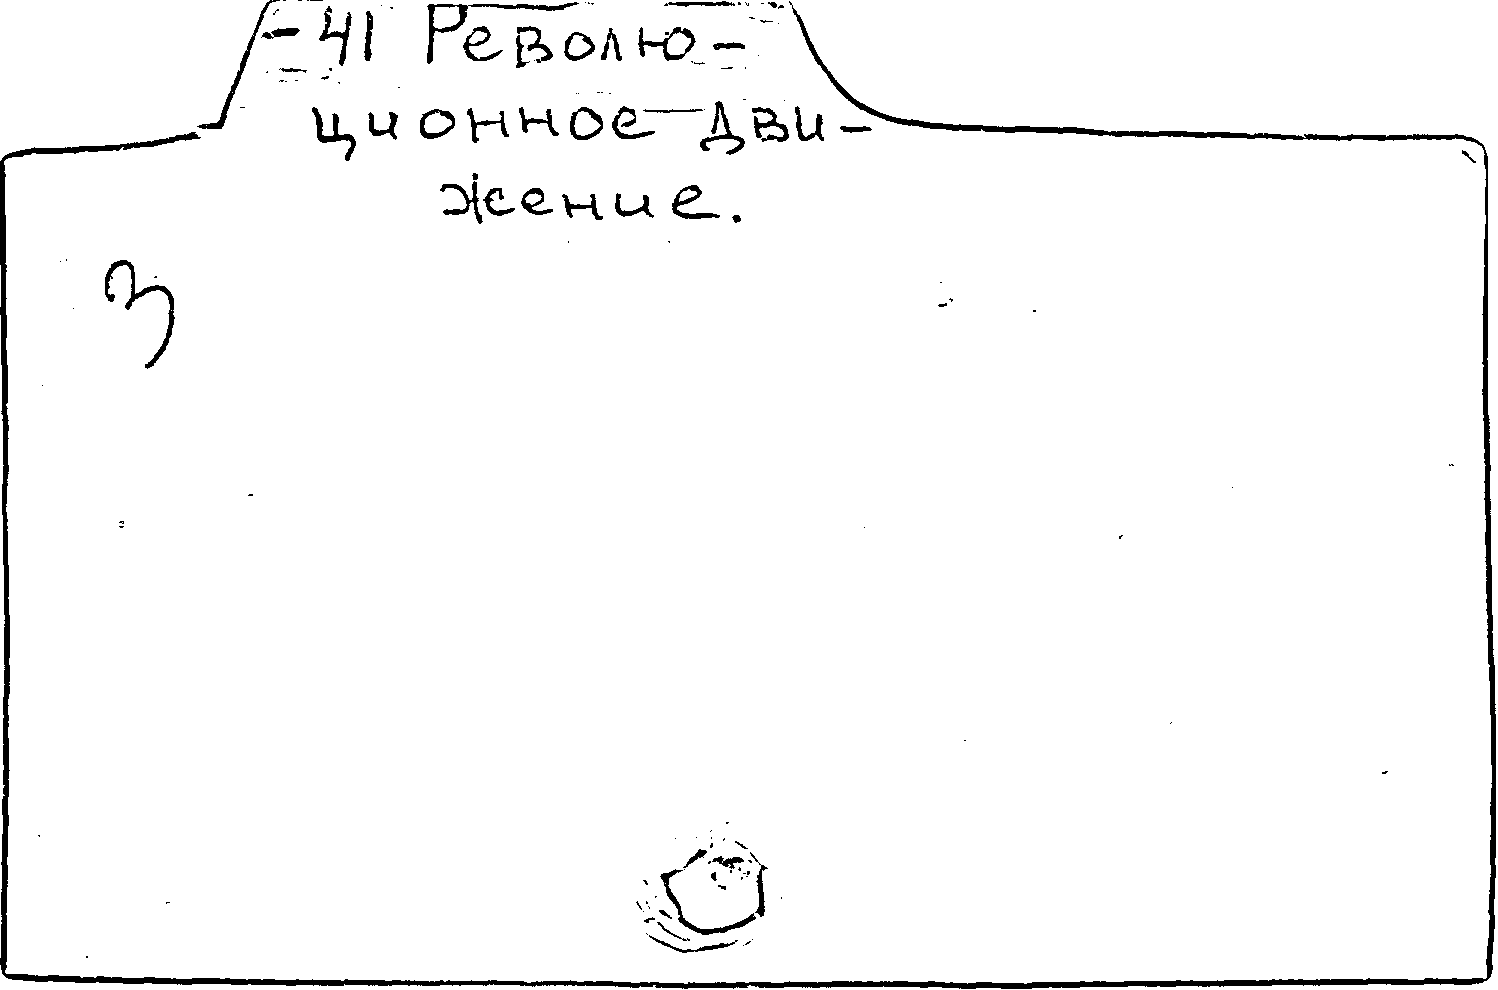 -41 Револю-
ционное дви-
жение.
З